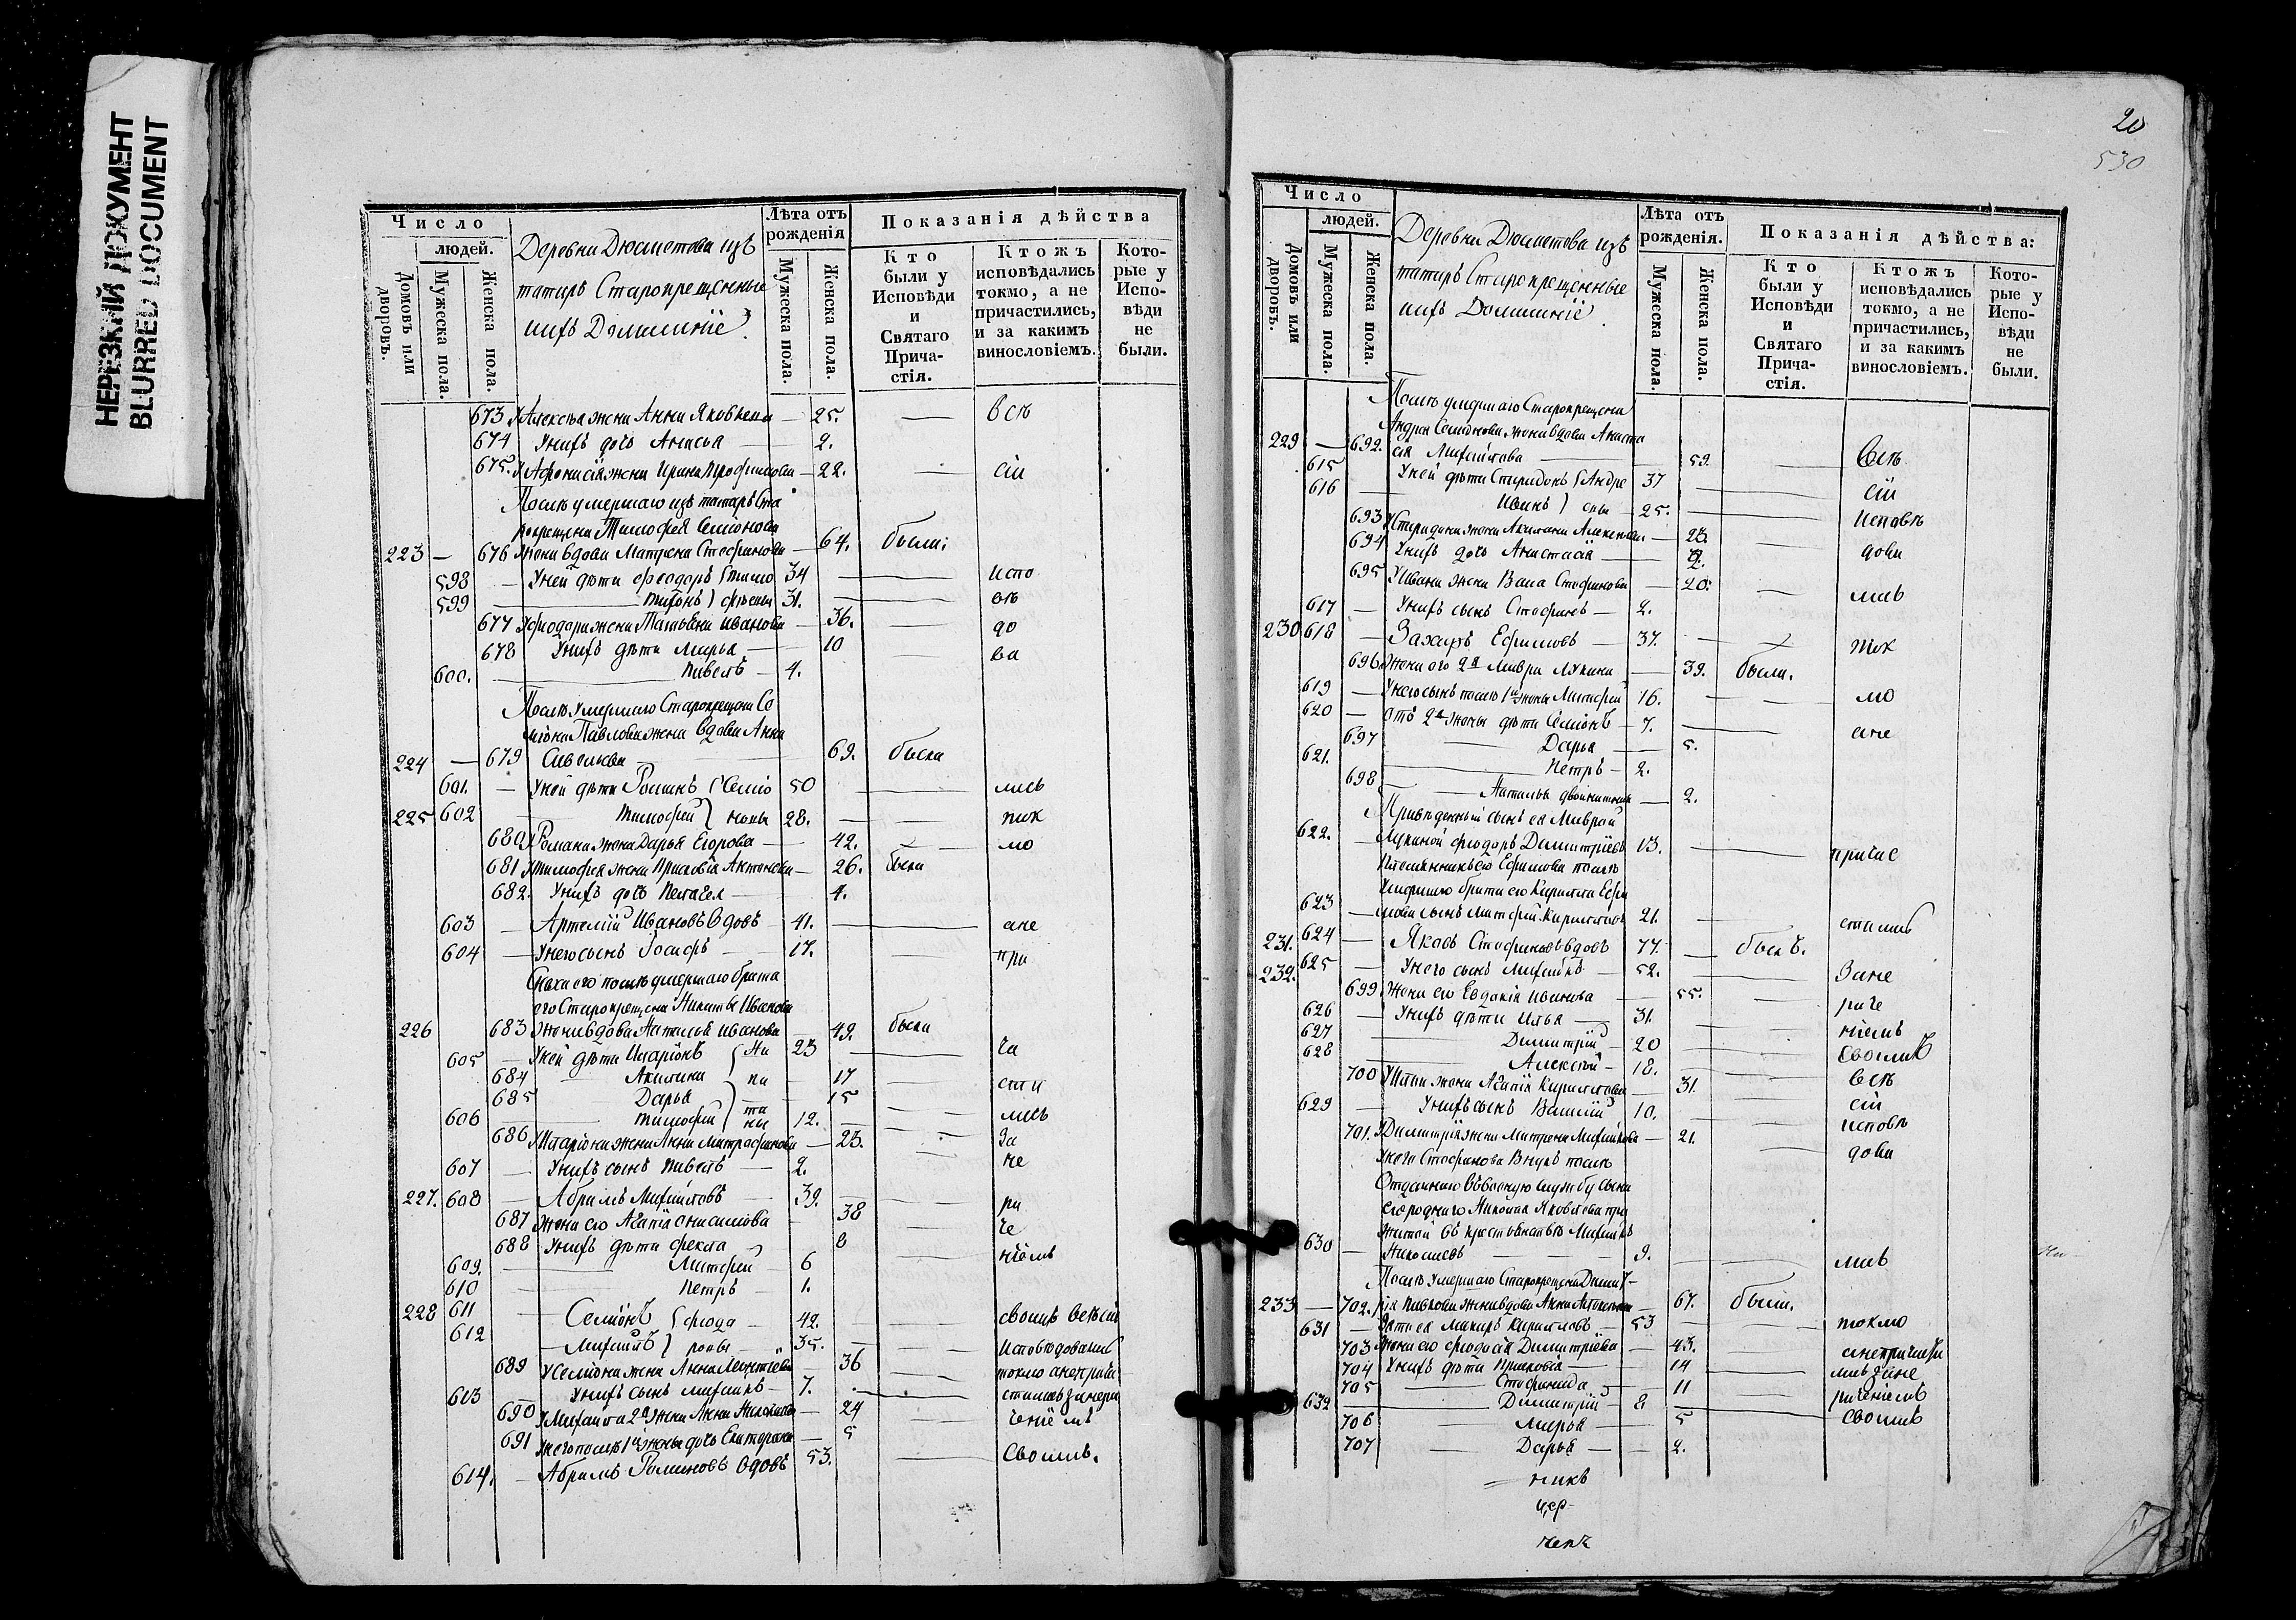 НЕРЕЗКИЙ ДОКУМЕНТ
BLURRED DOCUMENT
Число
людей.
Домовъ или дворовъ.
Мужеска пола.
Женска пола.
Деревни Дюсметева изъ
татаръ Старокрещенные
нихъ Домашніе
Лѣта отъ рожденія
Мужеска пола.
Женска пола.
Показанія дѣйства
Кто были у Исповѣди и Святаго Причастія.
Ктожъ исповѣдались токмо, а не причастились, и за какимъ винословіемъ.
Которые у Исповѣди не были.
673 Алексѣя жена Анна Яковлева — 25. — всѣ
674 У нихъ дочь Анисья — 2.
675. Афонасія жена Ирина Трофимова — 22. — сіи
Послѣ умершаго изъ татаръ Ста
рокрещена Тимофея Семіонова
223 — 676 жена вдова Матрена Стефанова — 64. были.
598 — У ней дѣти Феодоръ Тимо 34 — испо
599 — Тихонъ } фѣевы 31. — вѣ
677 Феодора жена Татьяна Иванова — 36. — до
678 У нихъ дѣти Марья — 10 — ва
600. — Павелъ — 4.
Послѣ умершаго Старокрещена Се
міона Павлова жена вдова Анна
224 — 679 Савельева — 69. была
601. — У ней дѣти Романъ { Семіо 50 — лись
225 602 Тимофей } новы 28. — ток
680 Романа жена Дарья Егорова — 42. — мо
681 Тимофея жена Прасковія Антонова — 26. была
682. У нихъ дочь Пелагея — 4.
603 — Артемій Ивановъ вдовъ — 41. — ане
604 — У него сынъ Іосифъ — 17. — при
Сноха его послѣ умершаго брата
его Старокрещена Никиты Иванова
226 683 жена вдова Наталья Иванова — 49. была
605 — У ней дѣти Иларіонъ { Ни 23 — ча
684 — Акилина ки — 17 — сти
685 — Дарья — 15
606 — Тимофей } ти ны 12. — лись
686 Иларіона жена Анна Митрофанова — 23. — За
607 — У нихъ сынъ Павелъ — 2. — не
227. 608 — Абрамъ Михайловъ — 39. — ра
687 жена его Агафія Онисимова — 38 — че
688 У нихъ дѣти Фекла — 8
609. — Матфей — 6 — ніемъ
610 — Петръ — 1.
228 611 — Семіонъ { Феодо — 42. — своимъ всѣ сіи
612 — Михаилъ } ровы — 35. — исповѣдовались
689 Семіона жена Анна Леонтіева — 36 токмо анеприча
613 У нихъ сынъ Михаилъ — 7. — стились занера
690 Михаила 2я жена Анна Николаева — 24 — ченіемъ
691 У него послѣ 1й жены дочь Екатерина — 5
614. — Абрамъ Романовъ вдовъ 53. — Своимъ.
20
530
Число
людей.
Домовъ или дворовъ.
Мужеска пола.
Женска пола.
Деревни Дюсметева изъ
татаръ Старокрещенные
нихъ Домашніе
Лѣта отъ рожденія.
Мужеска пола.
Женска пола.
Показанія дѣйства:
Кто были у Исповѣди и Святаго Причастія.
Ктожъ исповѣдались токмо, а не причастились, и за какимъ винословіемъ.
Которые у Исповѣди не были.
Послѣ умершаго Старокрещена
Андрея Семіонова жена вдова Анаста
229 — 692. сія Михайлова — 59. — Всѣ
615 У ней дѣти Спиридонъ { Андре 37 — сіи
616 — Иванъ } евы — 25. — исповѣ
693 Спиридона жена Акилина Алексѣева — 23.
694 У нихъ дочь Анастасія — 2. — дова
695 Ивана жена Васса Стефанова — 20. — лись
617 — У нихъ сынъ Стефанъ — 2.
230 618 — Захаръ Ефимовъ — 37. — ток
696 жена его 2я Мавра Лукина — 39. были.
619 — У него сынъ послѣ 1й жены Матфей 16. — мо
620 — Отъ 2й жены дѣти Семіонъ — 7. — ане
697 — Дарья — 5.
621. — Петръ — 2.
698 — Наталья двойнишна — 2.
Приведенный сынъ ея Маврой
622. — Лукиной Феодоръ Димитріевъ 13. — причас
Племянникъ его Ефимова послѣ
умершаго брата его Кирилла Ефи
623 — мова сынъ Матфей Кирилловъ 21. — тились
231. 624 — Яковъ Стефановъ вдовъ 77. — былъ.
232. 625 — У него сынъ Михаилъ — 52. — Зане
699 Жена его Евдокія Иванова — 55. — раче
626 — У нихъ дѣти Илья — 31. — ніемъ
627 — Димитрій — 20 — Своимъ
628 — Алексѣй — 18. — всѣ
700 Ильи жена Агафія Кириллова — 31. — сіи
629 — У нихъ сынъ Василій — 10. — исповѣ
701. Димитрія жена Матрена Михайлова — 21. — дова
У него Стефанова внукъ послѣ
Отданнаго въ военную службу сына
его роднаго Николая Яковлева при
житой въ крестьянствѣ Михаилъ
630 — Николаевъ — 9. — лись
Послѣ умершаго Старокрещена Димит-
233 — 702. рія Павлова жена вдова Анна Антонова — 67. были.
631 — Зять ея Макаръ Кирилловъ — 53 — токмо
703 Жена его Феодосія Димитріева — 43. — анепричасти
704 У нихъ дѣти Прасковія — 14 — лись Зане
705 — Стефанида — 11 — раченіемъ
632 — Димитрій — 8 — своимъ
706 — Марья — 5
707 — Дарья — 2.